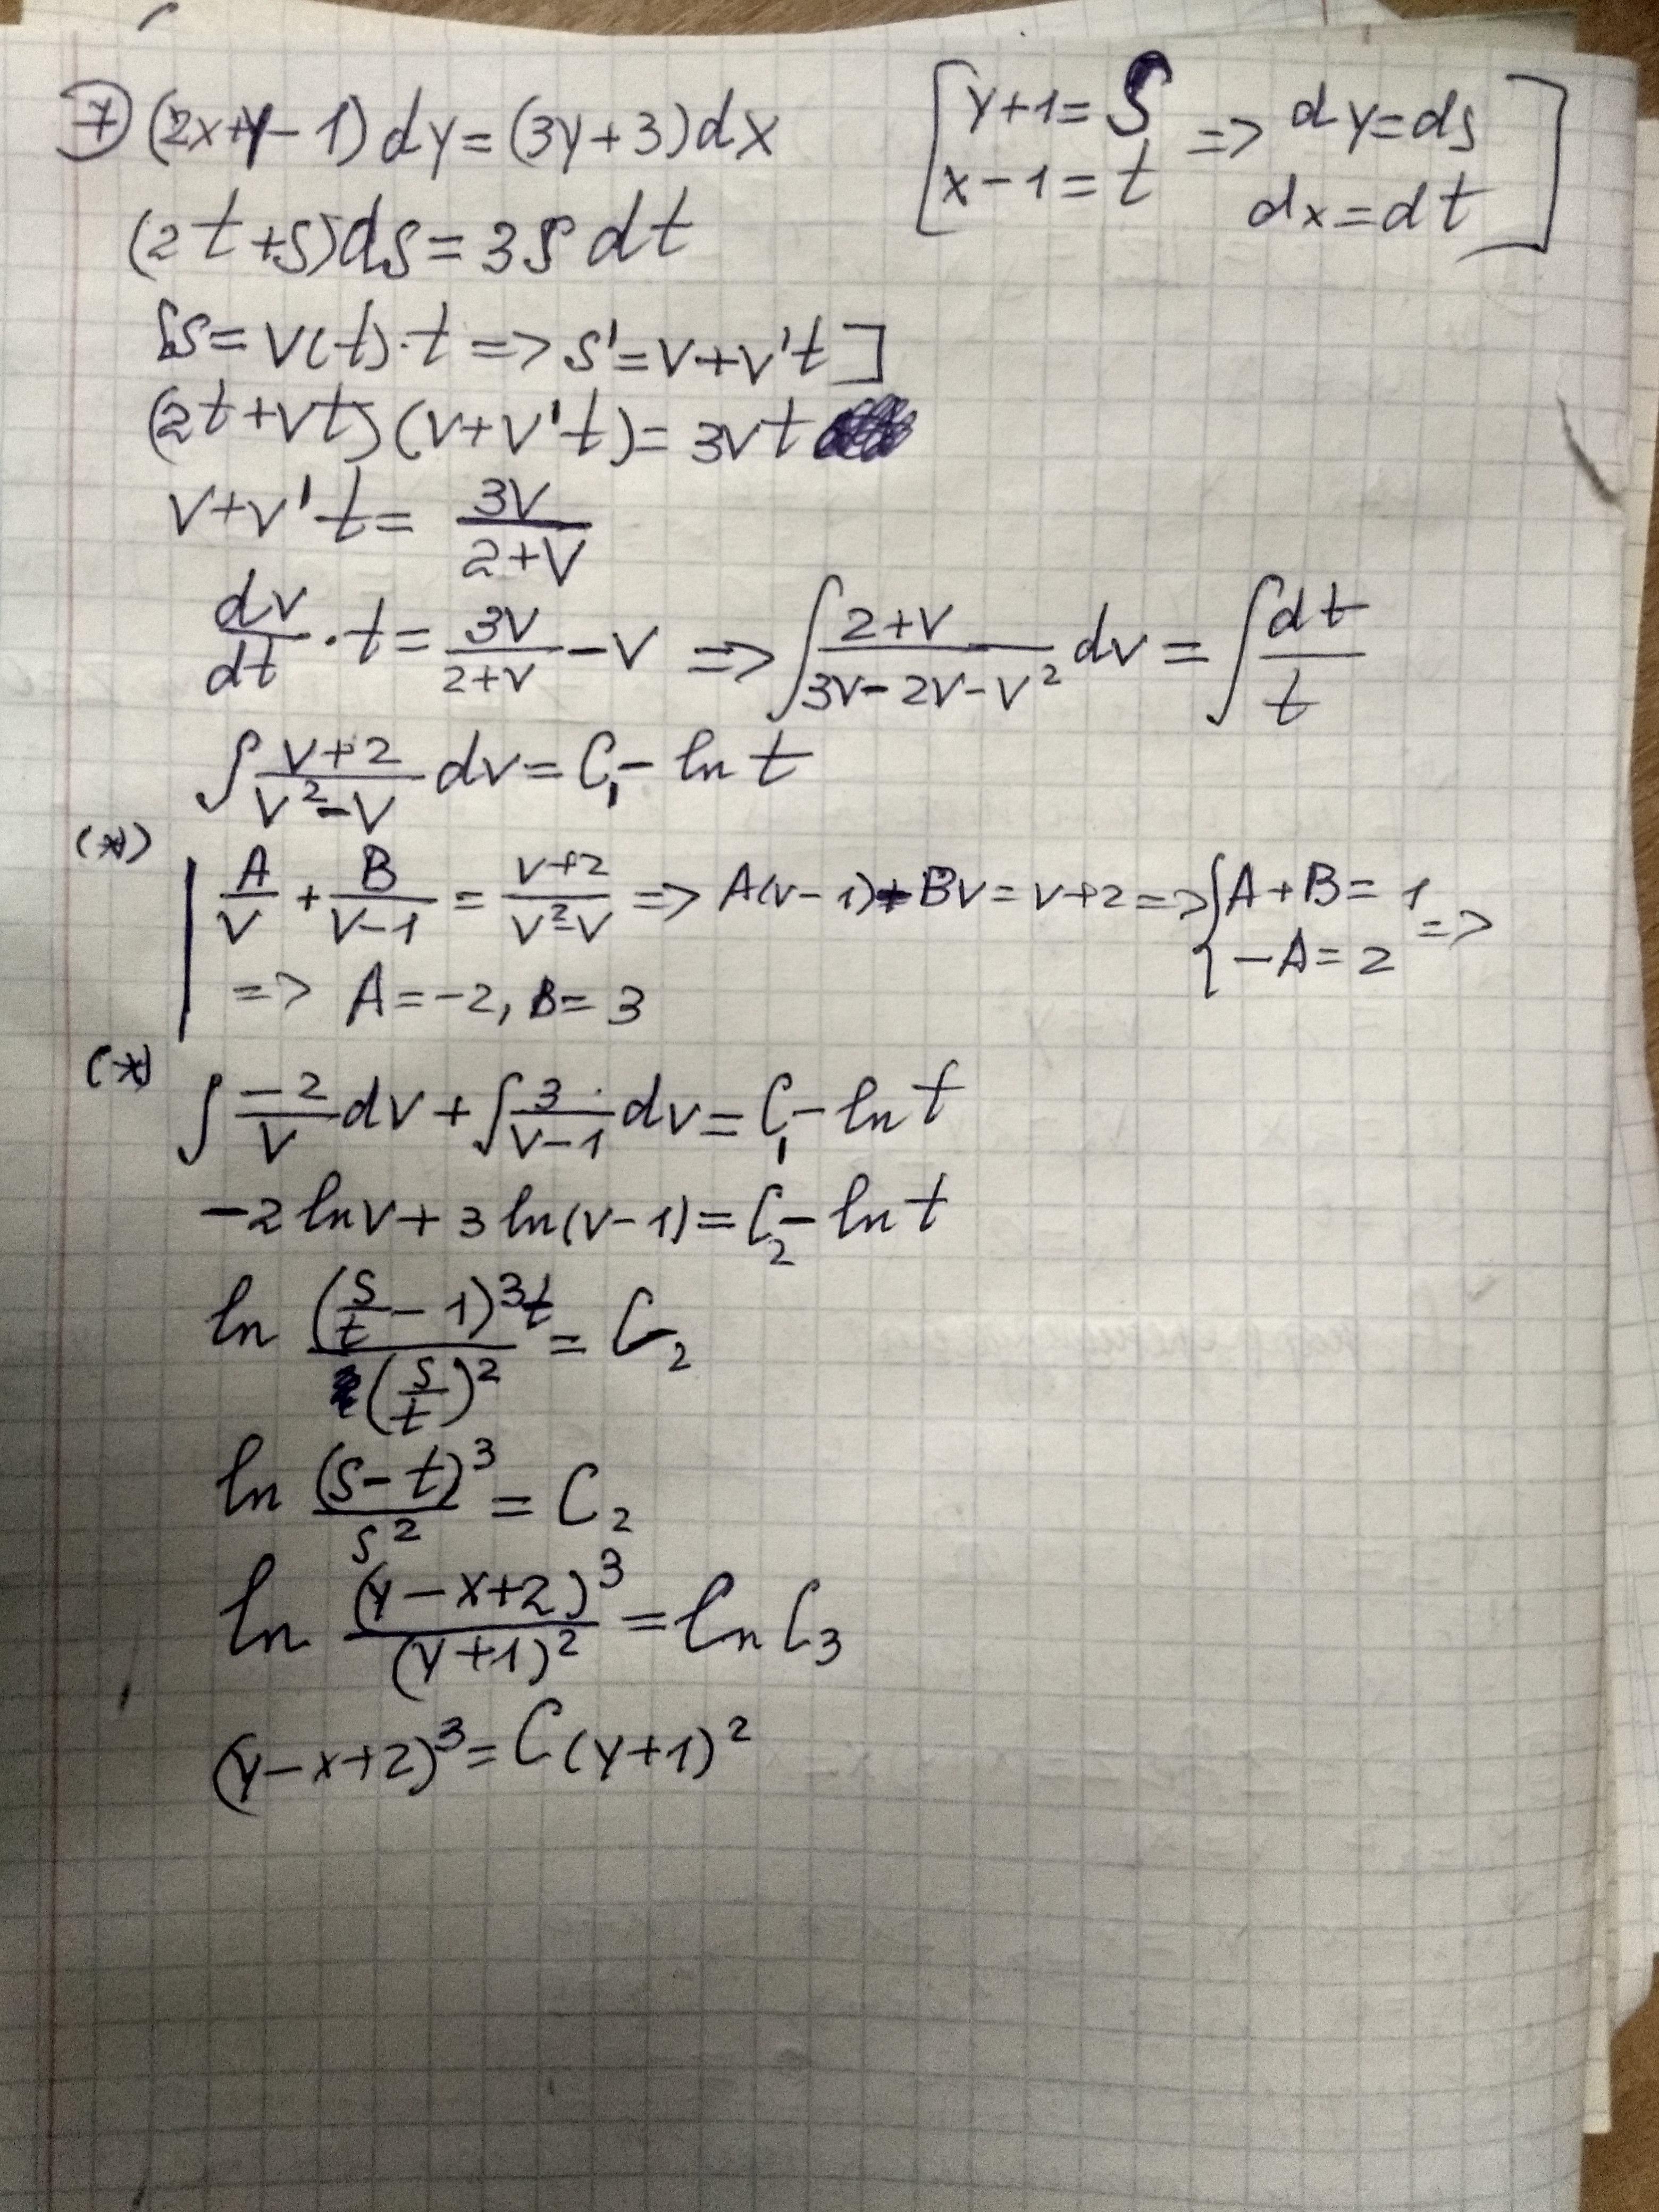 ⑦ (2x+y-1)dy=(3y+3)dx [y+1=S => dy=ds
x-1=t dx=dt]
(2t+s)ds=3s dt
[s=v(t)·t => s'=v+v't]
(2t+vt)(v+v't)=3vt
v+v't= 3v/(2+v)
dv/dt·t= 3v/(2+v) -v => ∫(2+v)/(3v-2v-v²) dv=∫dt/t
∫(v+2)/(v²-v) dv=C₁-ln t
(*)
A/v + B/(v-1) = (v+2)/(v²-v) => A(v-1)+Bv=v+2=>{A+B=1 =>
-A=2
=> A=-2, B=3
(*)
∫-2/v dv+∫3/(v-1) dv=C₁-ln t
-2lnv+3ln(v-1)=C₂-ln t
ln (s/t-1)³t/(s/t)² = C₂
ln (s-t)³/s² = C₂
ln (y-x+2)³/(y+1)² = ln C₃
(y-x+2)³=C(y+1)²